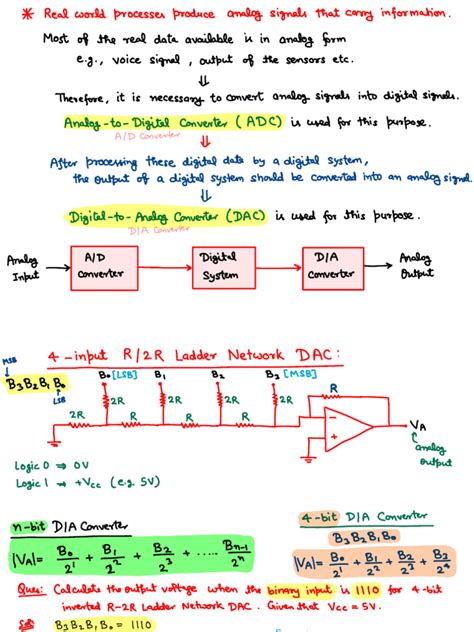 * Real world processes produce analog signals that carry information.
Most of the real data available is in analog form
e.g., voice signal, output of the sensors etc.
⇓
Therefore, it is necessary to convert analog signals into digital signals.
Analog-to-Digital Converter (ADC) is used for this purpose.
A/D Converter
⇓
After processing these digital data by a digital system,
the output of a digital system should be converted into an analog signal.
⇓
Digital-to-Analog Converter (DAC) is used for this purpose.
D/A Converter
Analog Input → A/D Converter → Digital System → D/A Converter → Analog Output
4-input R/2R Ladder Network DAC:
MSB
B3B2B1B0
LSB
B0 [LSB] B1 B2 B3 [MSB]
2R 2R 2R 2R R
2R R R R
VA
analog output
Logic 0 ⇒ 0V
Logic 1 → +Vcc (e.g. 5V)
n-bit D/A Converter
|VA| = B0/2^1 + B1/2^2 + B2/2^3 + ..... Bn-1/2^n
4-bit D/A Converter
B3B2B1B0
|VA| = B0/2^1 + B1/2^2 + B2/2^3 + B3/2^4
Ques: Calculate the output voltage when the binary input is 1110 for 4-bit
inverted R-2R Ladder Network DAC. Given that Vcc = 5V.
Sol: B3B2B1B0 = 1110